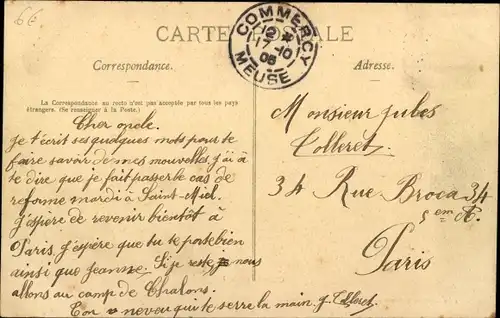 6€
CARTE POSTALE
COMMERCY
12
17-10
06
MEUSE
Correspondance.
Adresse.
La Correspondance au recto n'est pas acceptée par tous les pays
étrangers. (Se renseigner à la Poste.)
Cher oncle.
Je t'écrit ses quelques mots pour te
faire savoir de mes nouvelles, j'ai à
te dire que je fait passer le cas de
reforme mardi à Saint-Miel.
J'espère de revenir bientôt à
Paris, j'espère que tu te porte bien
ainsi que Jeanne. Si je reste nous
allons au camp de Chalons.
Ton neveu qui te serre la main. J. Colleret.
Monsieur Jules
Colleret
34 Rue Broca 34
5em A.
Paris